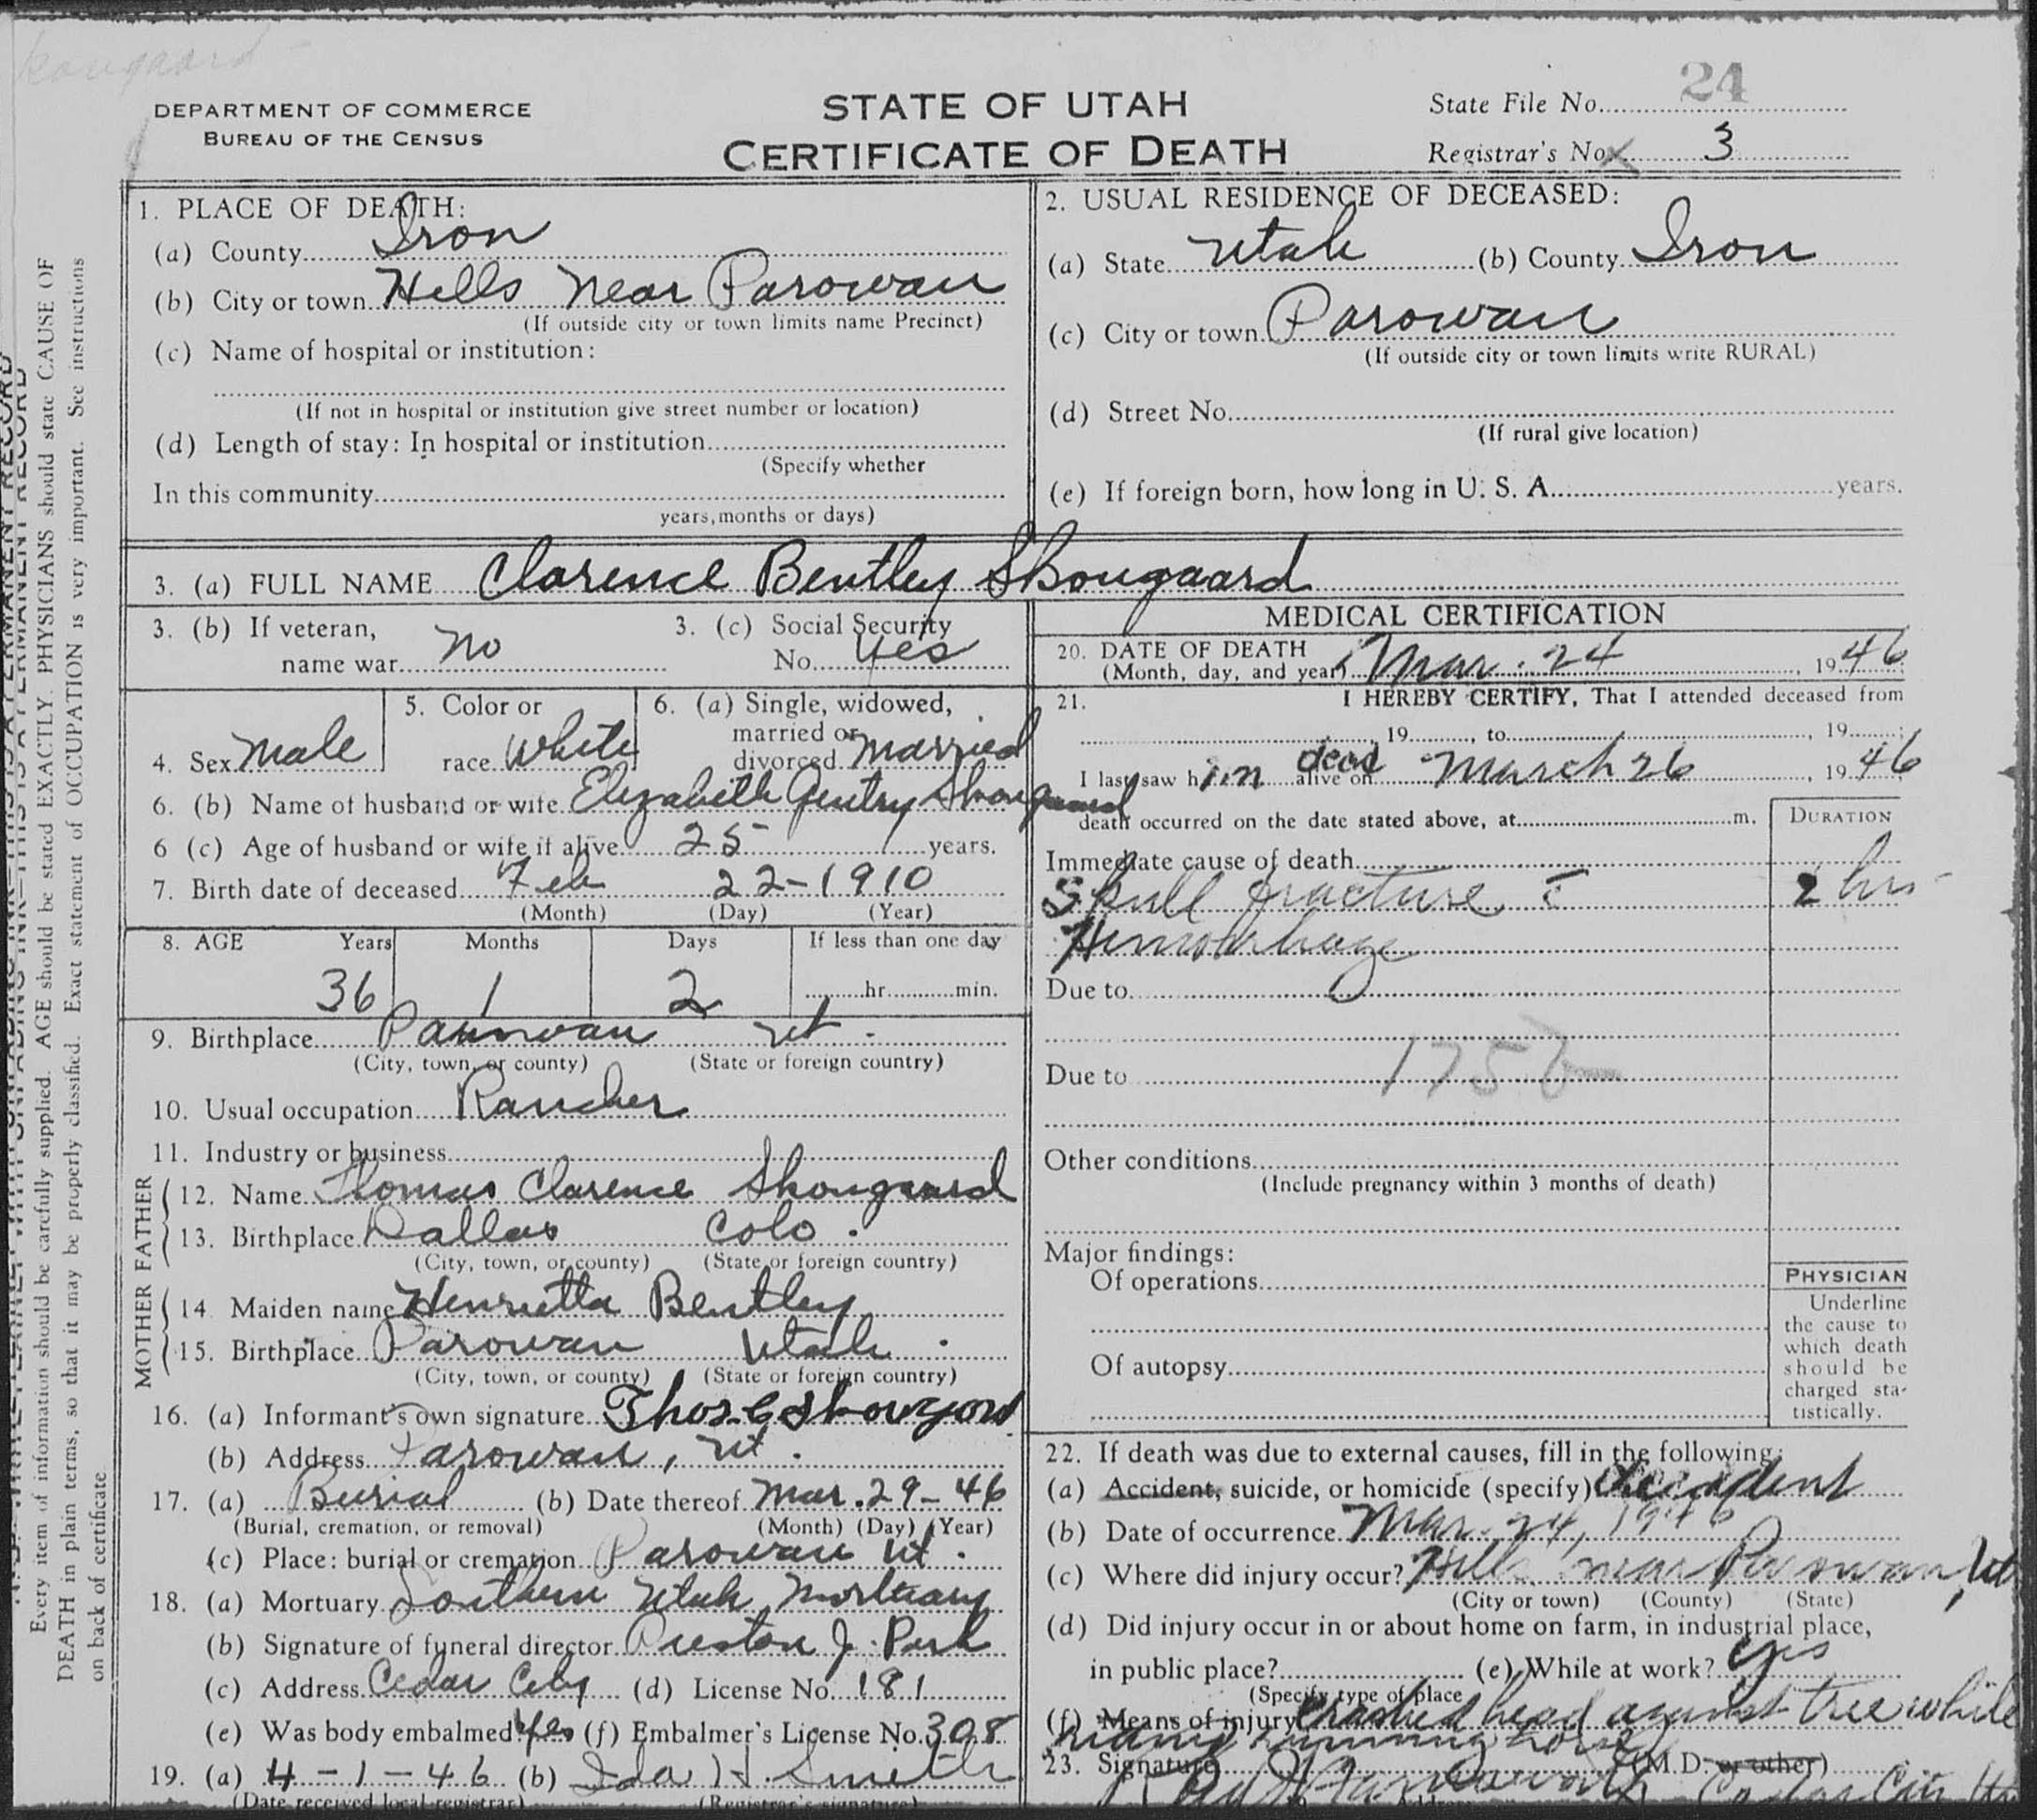 DEPARTMENT OF COMMERCE
BUREAU OF THE CENSUS
STATE OF UTAH
CERTIFICATE OF DEATH
State File No. 24
Registrar's No. X 3
1. PLACE OF DEATH:
(a) County Iron
(b) City or town Hills Near Parowan
(If outside city or town limits name Precinct)
(c) Name of hospital or institution:
(If not in hospital or institution give street number or location)
(d) Length of stay: In hospital or institution
(Specify whether
In this community
years, months or days)
2. USUAL RESIDENCE OF DECEASED:
(a) State Utah (b) County Iron
(c) City or town Parowan
(If outside city or town limits write RURAL)
(d) Street No.
(If rural give location)
(e) If foreign born, how long in U. S. A. years.
3. (a) FULL NAME Clarence Bentley Skougaard
3. (b) If veteran,
name war No
3. (c) Social Security
No. Yes
4. Sex Male
5. Color or
race White
6. (a) Single, widowed,
married or
divorced Married
6. (b) Name of husband or wife Elizabeth Gentry Skougaard
6 (c) Age of husband or wife if alive 25 years.
7. Birth date of deceased Feb 22-1910
(Month) (Day) (Year)
8. AGE Years Months Days If less than one day
36 1 2 hr. min.
9. Birthplace Parowan Ut.
(City, town, or county) (State or foreign country)
10. Usual occupation Rancher
11. Industry or business
FATHER
12. Name Thomas Clarence Skougaard
13. Birthplace Dallas Colo.
(City, town, or county) (State or foreign country)
MOTHER
14. Maiden name Henrietta Bentley
15. Birthplace Parowan Utah.
(City, town, or county) (State or foreign country)
16. (a) Informant's own signature Thos. C Skougard
(b) Address Parowan, Ut.
17. (a) Burial (b) Date thereof Mar. 29-46
(Burial, cremation, or removal) (Month) (Day) (Year)
(c) Place: burial or cremation Parowan Ut.
18. (a) Mortuary Southern Utah Mortuary
(b) Signature of funeral director Preston J. Park
(c) Address Cedar City (d) License No. 181
(e) Was body embalmed Yes (f) Embalmer's License No. 308
19. (a) 4-1-46 (b) Ida H. Smith
(Date received local registrar) (Registrar's signature)
MEDICAL CERTIFICATION
20. DATE OF DEATH
(Month, day, and year) Mar. 24, 1946
21. I HEREBY CERTIFY, That I attended deceased from
, 19 , to , 19 ;
I last saw him dead alive on March 26, 1946
death occurred on the date stated above, at m.
DURATION
Immediate cause of death
Skull fracture c̄ 2 hrs
Hemorrhage
Due to
Due to 175b
Other conditions
(Include pregnancy within 3 months of death)
Major findings:
Of operations
Of autopsy
PHYSICIAN
Underline
the cause to
which death
should be
charged sta-
tistically.
22. If death was due to external causes, fill in the following:
(a) Accident, suicide, or homicide (specify) Accident
(b) Date of occurrence Mar. 24, 1946
(c) Where did injury occur? Hills near Parowan, Ut
(City or town) (County) (State)
(d) Did injury occur in or about home on farm, in industrial place,
in public place? (e) While at work? Yes
(Specify type of place
(f) Means of injury Crashed head against tree while
riding running horse
23. Signature (M.D. or other)
Cedar City Ut
Every item of information should be carefully supplied. AGE should be stated EXACTLY. PHYSICIANS should state CAUSE OF
DEATH in plain terms, so that it may be properly classified. Exact statement of OCCUPATION is very important. See instructions
on back of certificate